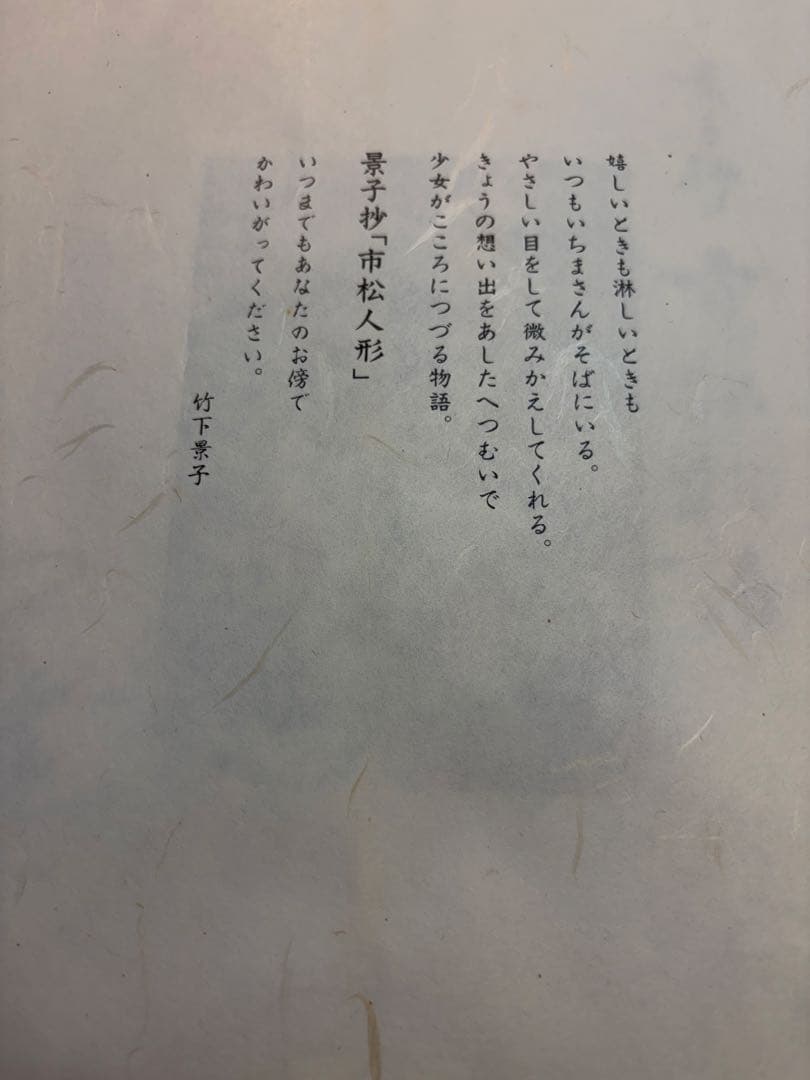 嬉しいときも淋しいときも
いつもいちまさんがそばにいる。
やさしい目をして微みかえしてくれる。
きょうの想い出をあしたへつむいで
少女がこころにつづる物語。
景子抄「市松人形」
いつまでもあなたのお傍で
かわいがってください。
竹下景子